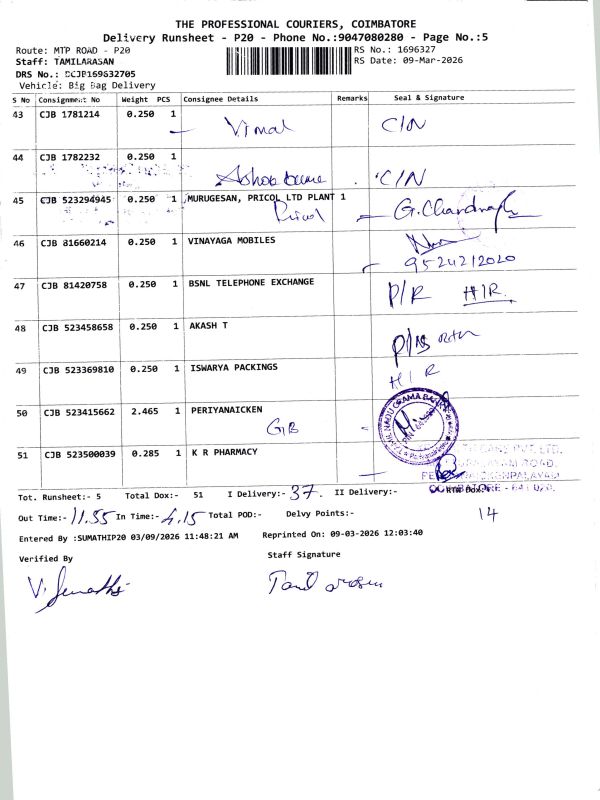 THE PROFESSIONAL COURIERS, COIMBATORE
Delivery Runsheet - P20 - Phone No.:9047080280 - Page No.:5
Route: MTP ROAD - P20
RS No.: 1696327
Staff: TAMILARASAN
RS Date: 09-Mar-2026
DRS No.: DCJB169632705
Vehicle: Big Bag Delivery
S No Consignment No Weight PCS Consignee Details Remarks Seal & Signature
43 CJB 1781214 0.250 1 Vimal C/N
44 CJB 1782232 0.250 1 C/N
45 CJB 523294945 0.250 1 MURUGESAN, PRICOL LTD PLANT 1
Pricol
46 CJB 81660214 0.250 1 VINAYAGA MOBILES
9524212020
47 CJB 81420758 0.250 1 BSNL TELEPHONE EXCHANGE P/R H/R
48 CJB 523458658 0.250 1 AKASH T
49 CJB 523369810 0.250 1 ISWARYA PACKINGS H/R
50 CJB 523415662 2.465 1 PERIYANAICKEN
GB
51 CJB 523500039 0.285 1 K R PHARMACY
Tot. Runsheet:- 5 Total Dox:- 51 I Delivery:- 37. II Delivery:-
Out Time:- 11.55 In Time:- 4.15 Total POD:- Delvy Points:- 14
Entered By :SUMATHIP20 03/09/2026 11:48:21 AM Reprinted On: 09-03-2026 12:03:40
Verified By Staff Signature